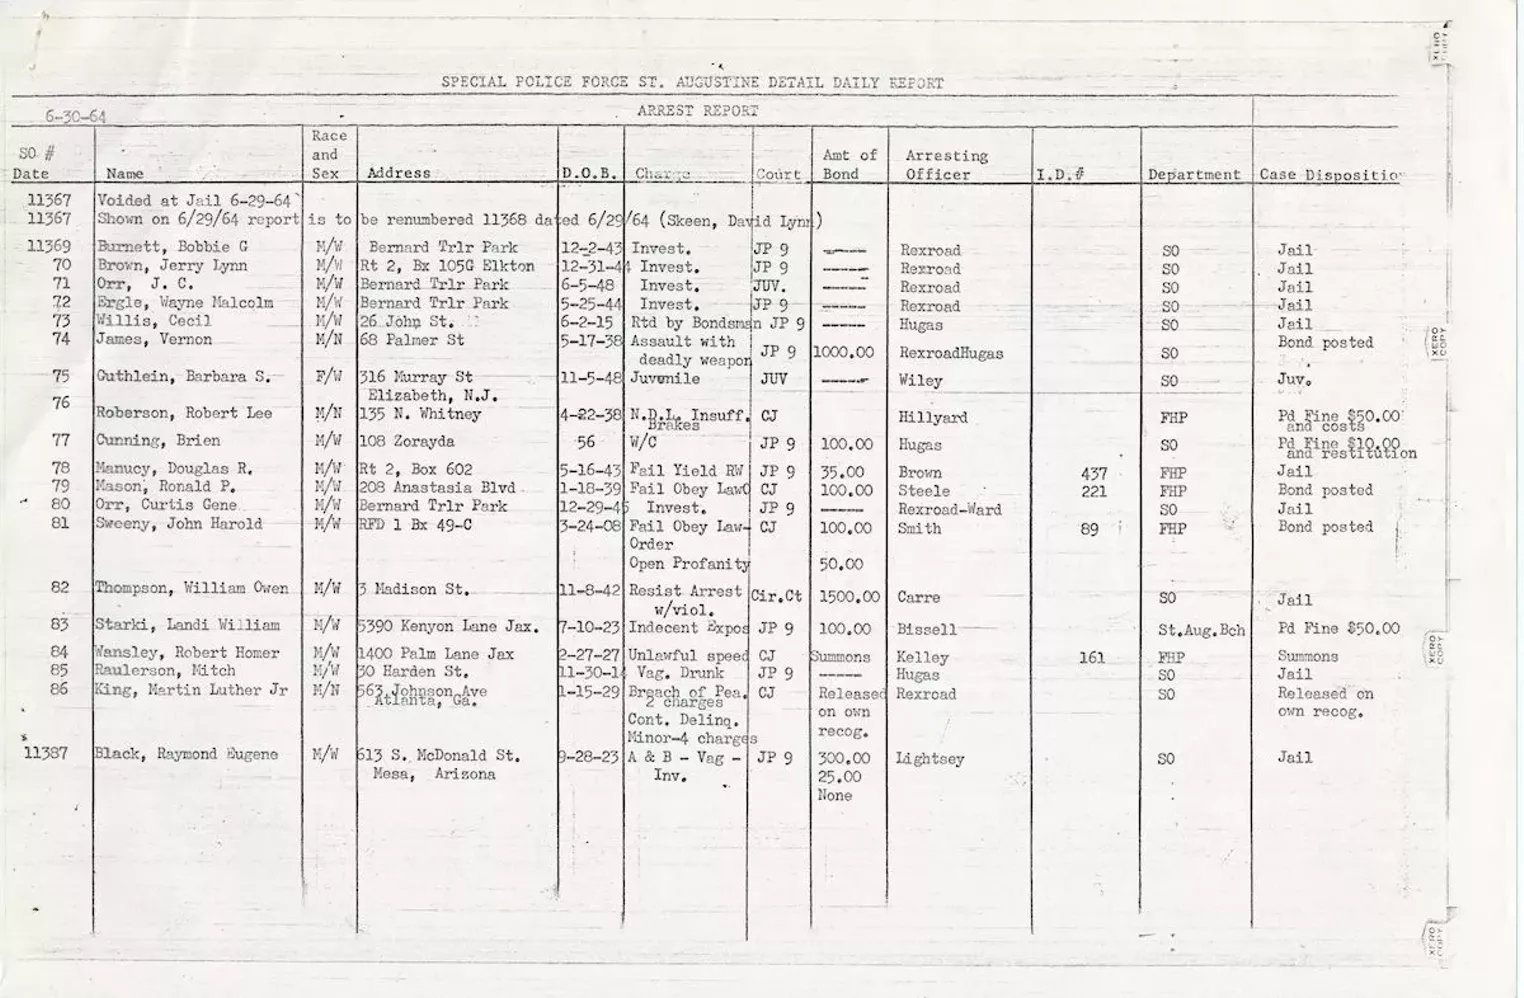 SPECIAL POLICE FORCE ST. AUGUSTINE DETAIL DAILY REPORT
6-30-64 ARREST REPORT
SO # Date Name Race and Sex Address D.O.B. Charge Court Amt of Bond Arresting Officer I.D.# Department Case Disposition
11367 Voided at Jail 6-29-64
11367 Shown on 6/29/64 report is to be renumbered 11368 dated 6/29/64 (Skeen, David Lynn)
11369 Burnett, Bobbie G M/W Bernard Trlr Park 12-2-43 Invest. JP 9 ---- Rexroad SO Jail
70 Brown, Jerry Lynn M/W Rt 2, Bx 105G Elkton 12-31-44 Invest. JP 9 ---- Rexroad SO Jail
71 Orr, J. C. M/W Bernard Trlr Park 6-5-48 Invest. JUV. ---- Rexroad SO Jail
72 Ergle, Wayne Malcolm M/W Bernard Trlr Park 5-25-44 Invest. JP 9 ---- Rexroad SO Jail
73 Willis, Cecil M/W 26 John St. 6-2-15 Rtd by Bondsman JP 9 ---- Hugas SO Jail
74 James, Vernon M/N 68 Palmer St 5-17-38 Assault with deadly weapon JP 9 1000.00 RexroadHugas SO Bond posted
75 Guthlein, Barbara S. F/W 316 Murray St 11-5-48 Juvenile JUV ---- Wiley SO Juv.
Elizabeth, N.J.
76 Roberson, Robert Lee M/N 135 N. Whitney 4-22-38 N.D.L. Insuff. Brakes CJ Hillyard FHP Pd Fine $50.00 and costs
77 Cunning, Brien M/W 108 Zorayda 56 W/C JP 9 100.00 Hugas SO Pd Fine $10.00 and restitution
78 Manucy, Douglas R. M/W Rt 2, Box 602 5-16-43 Fail Yield RW JP 9 35.00 Brown 437 FHP Jail
79 Mason, Ronald P. M/W 208 Anastasia Blvd 1-18-39 Fail Obey LawO CJ 100.00 Steele 221 FHP Bond posted
80 Orr, Curtis Gene M/W Bernard Trlr Park 12-29-45 Invest. JP 9 ---- Rexroad-Ward SO Jail
81 Sweeny, John Harold M/W RFD 1 Bx 49-C 3-24-08 Fail Obey Law- CJ 100.00 Smith 89 FHP Bond posted
Order
Open Profanity 50.00
82 Thompson, William Owen M/W 3 Madison St. 11-8-42 Resist Arrest w/viol. Cir.Ct 1500.00 Carre SO Jail
83 Starki, Landi William M/W 5390 Kenyon Lane Jax. 7-10-23 Indecent Expos JP 9 100.00 Bissell St.Aug.Bch Pd Fine $50.00
84 Wansley, Robert Homer M/W 1400 Palm Lane Jax 2-27-27 Unlawful speed CJ Summons Kelley 161 FHP Summons
85 Raulerson, Mitch M/W 30 Harden St. 11-30-14 Vag. Drunk JP 9 ---- Hugas SO Jail
86 King, Martin Luther Jr M/N 563 Johnson Ave 1-15-29 Breach of Pea. CJ Released Rexroad SO Released on
Atlanta, Ga. 2 charges on own own recog.
Cont. Delinq. recog.
Minor-4 charges
11387 Black, Raymond Eugene M/W 613 S. McDonald St. 9-28-23 A & B - Vag - JP 9 300.00 Lightsey SO Jail
Mesa, Arizona Inv. 25.00
None
XERO COPY
XERO COPY
XERO COPY
XERO COPY